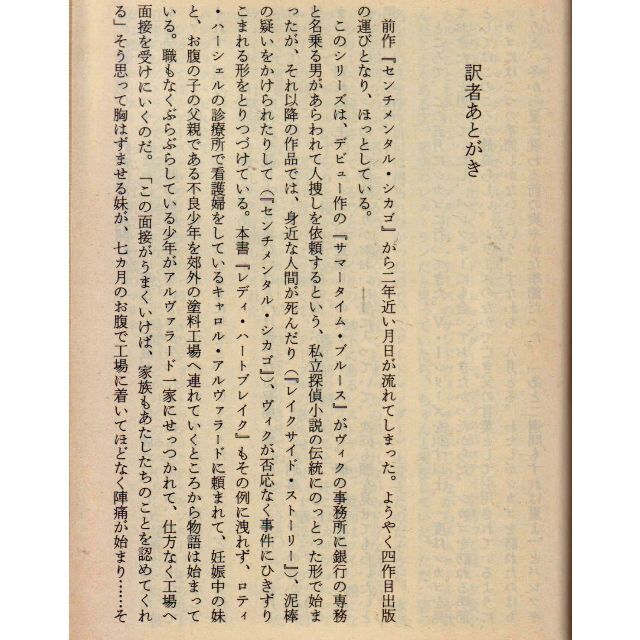 訳者あとがき
前作『センチメンタル・シカゴ』から二年近い月日が流れてしまった。ようやく四作目出版
の運びとなり、ほっとしている。
このシリーズは、デビュー作の『サマータイム・ブルース』がヴィクの事務所に銀行の専務
と名乗る男があらわれて人捜しを依頼するという、私立探偵小説の伝統にのっとった形で始ま
ったが、それ以降の作品では、身近な人間が死んだり（『レイクサイド・ストーリー』）、泥棒
の疑いをかけられたりして（『センチメンタル・シカゴ』）、ヴィクが否応なく事件にひきずり
こまれる形をとりつづけている。本書『レディ・ハートブレイク』もその例に洩れず、ロティ
・ハーシェルの診療所で看護婦をしているキャロル・アルヴァラードに頼まれて、妊娠中の妹
と、お腹の子の父親である不良少年を郊外の塗料工場へ連れていくところから物語は始まって
いる。職もなくぶらぶらしている少年がアルヴァラード一家にせっつかれて、仕方なく工場へ
面接を受けにいくのだ。「この面接がうまくいけば、家族もあたしたちのことを認めてくれ
る」そう思って胸はずませる妹が、七ヵ月のお腹で工場に着いてほどなく陣痛が始まり……そ